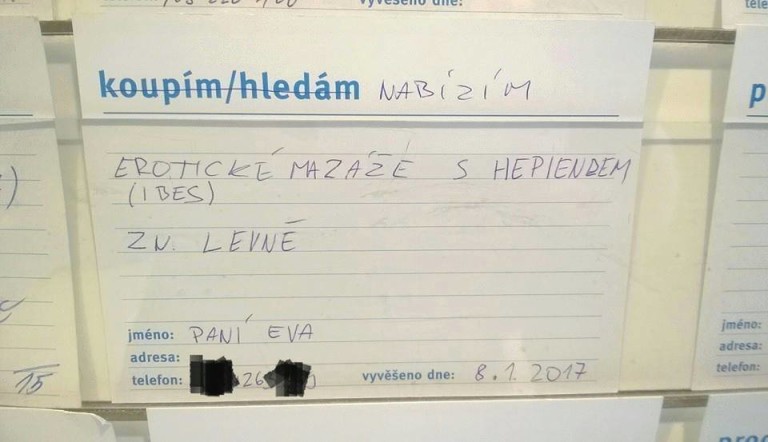 vyvěšeno dne:
koupím/hledám NABÍZÍM
EROTICKÉ MAZÁŽE S HEPIENDEM
(I BES)
ZN. LEVNĚ
jméno: PANÍ EVA
adresa:
telefon: 26 vyvěšeno dne: 8.1.2017
15
p
jméno:
adresa:
telefon: